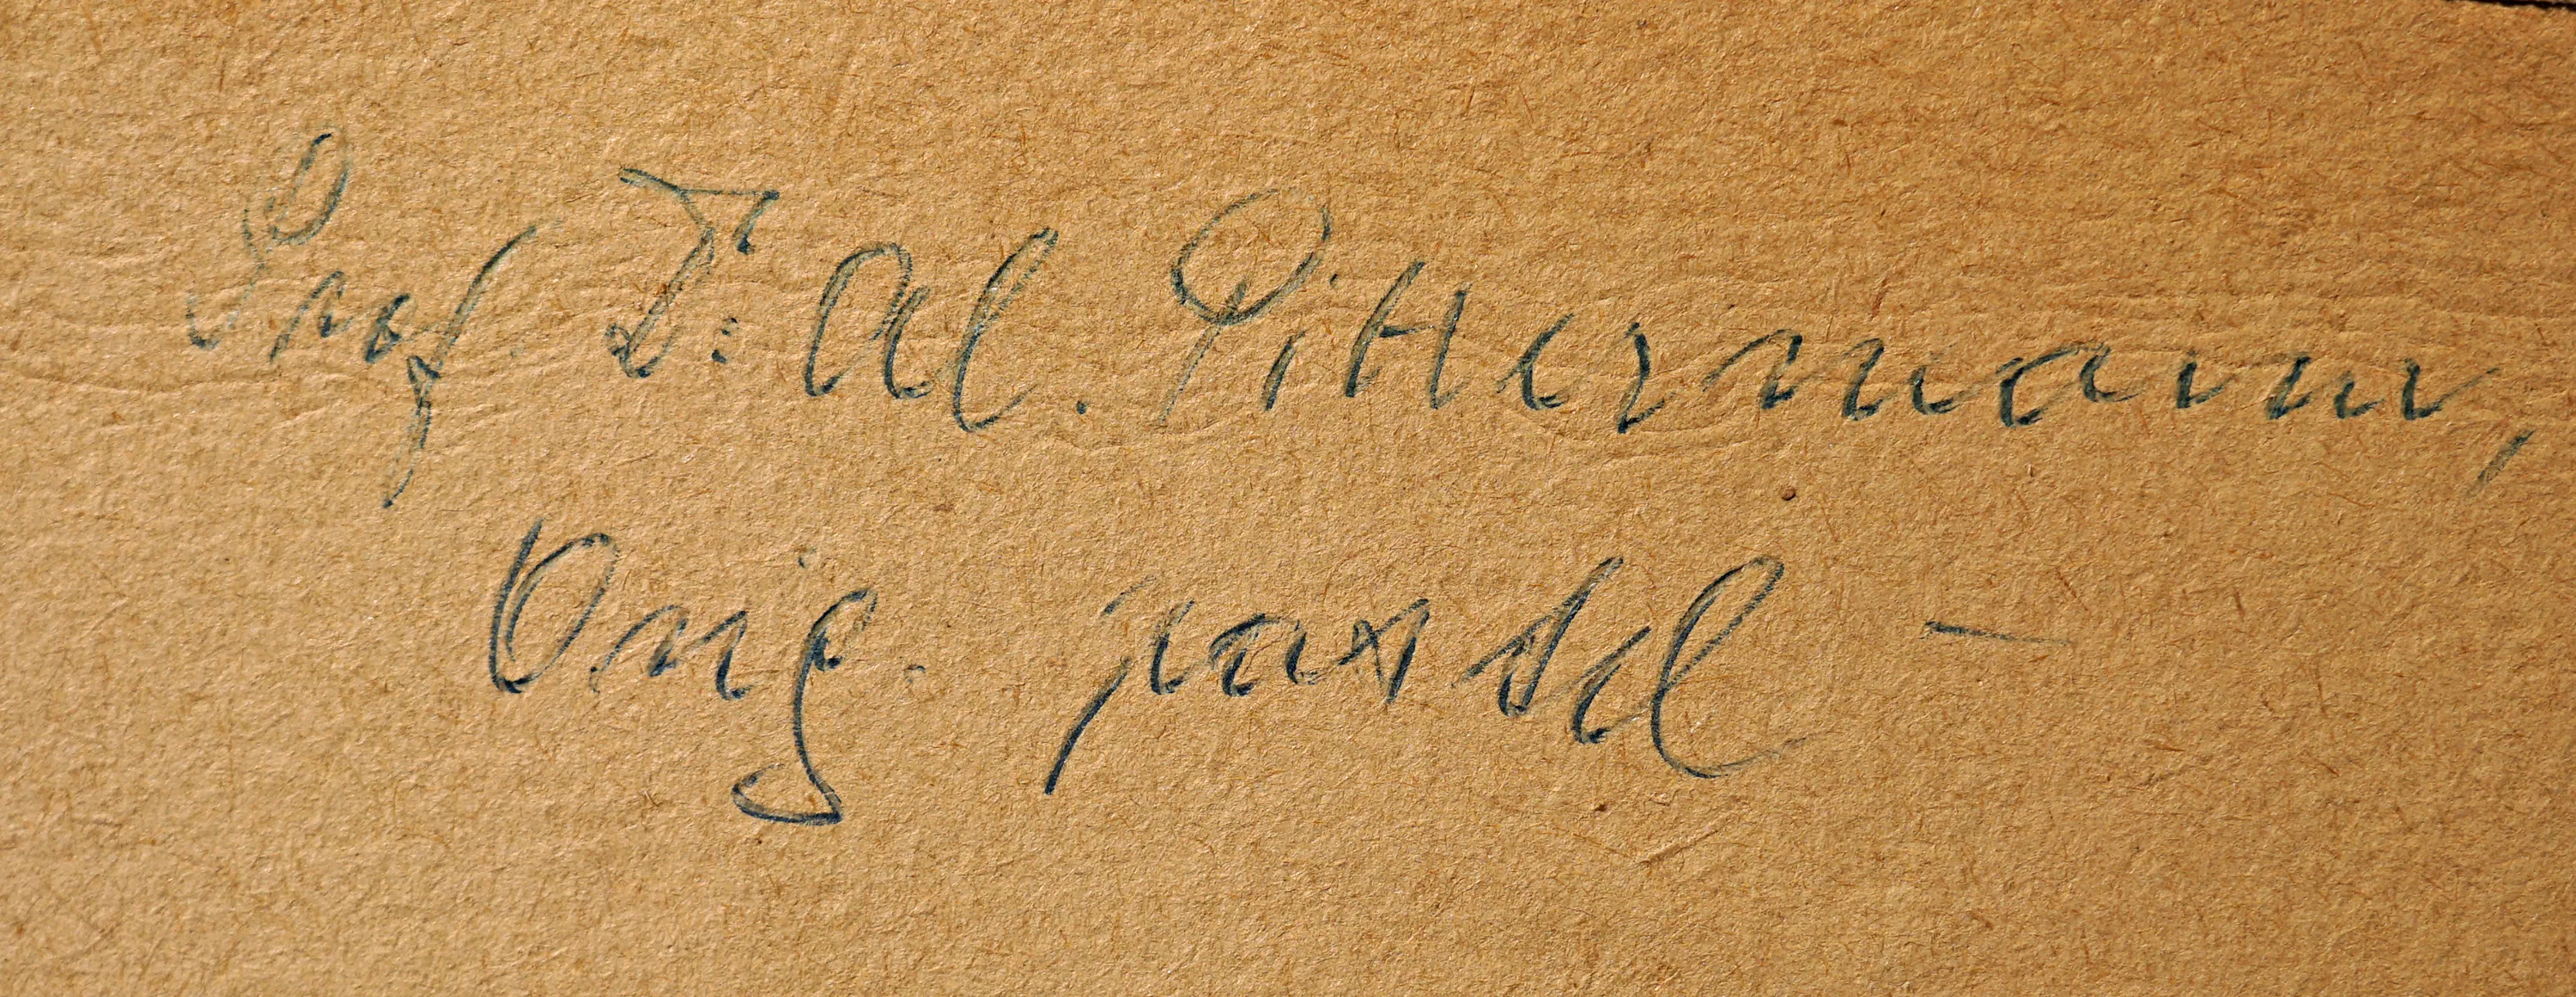 Prof Dr. Al. Pittermann,
Orig. pastel —